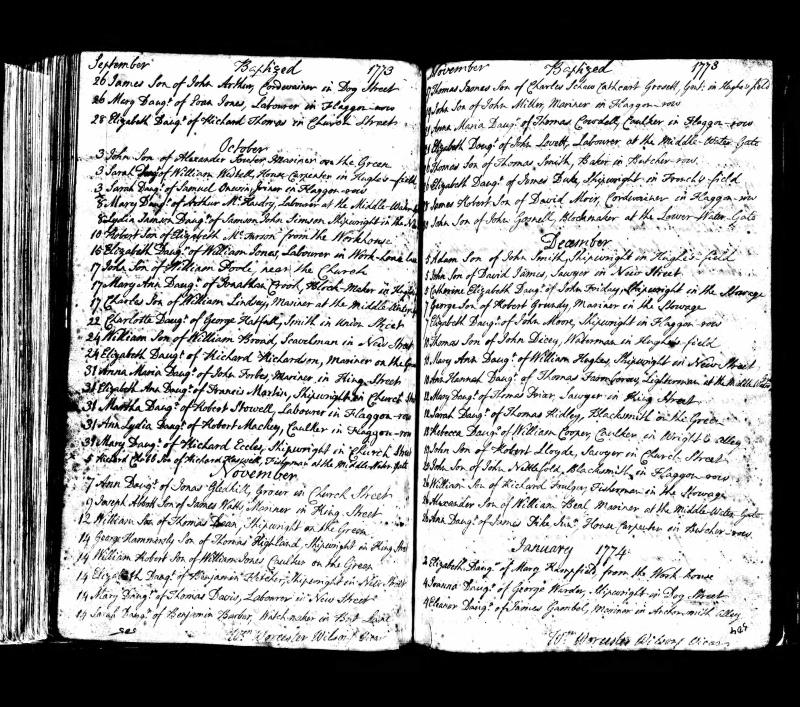 September Baptized 1773
26 James Son of John Arthur, Cordwainer in Dog Street
26 Mary Daug.r of Evan Jones, Labourer in Flaggon-row
28 Elizabeth Daug.r of Richard Thomas in Church Street
October
3 John Son of Alexander Mariner on the Green
3 Sarah Daug.r of William House Carpenter in Hughe's-field
3 Sarah Daug.r of Samuel Joiner in Flaggon-row
8 Mary Daug.r of Arthur Mc Hardy, Labourer at the Middle-Water
Lydia Simson Daug.r of Samson John Simson Shipwright in the
10 Robert Son of Elizabeth from the Workhouse
15 Elizabeth Daug.r of William Jonas, Labourer in
17 John Son of William Poole, near the Church
17 Mary Ann Daug.r of Jonathan Crook, Block-Maker in
17 Charles Son of William Lindsey, Mariner at the Middle-Water
22 Charlotte Daug.r of George Hatfall, Smith in Union Street
24 William Son of William Broad, Scavelman in New Street
24 Elizabeth Daug.r of Richard Richardson, Mariner on the
31 Anna Maria Daug.r of John Forbes, Mariner, in King Street
31 Elizabeth Ann Daug.r of Francis Martin, Shipwright in Church
31 Martha Daug.r of Robert Howell, Labourer in Flaggon-row
31 Ann Lydia Daug.r of Robert Mackey, Caulker in Flaggon-row
31 Mary Daug.r of Richard Eccles, Shipwright in Church Street
5 Richard Son of Richard at the Middle Water Gate
November
7 Ann Daug.r of Jonas Gledhill, Grocer in Church Street
9 Joseph Abbott Son of James Mariner in King Street
12 William Son of Thomas Shipwright on the Green
14 George Hammersly Son of Thomas Highland, Shipwright in King Street
14 William Robert Son of William Jones Caulker on the Green
14 Elizabeth Daug.r of Benjamin Fletcher, Shipwright in New Street
14 Mary Daug.r of Thomas Davis, Labourer in New Street
14 Sarah Daug.r of Benjamin Barber, Watch-maker in Lane
Wm Worcester Wilson Vicar
November Baptized 1773
Thomas James Son of Charles Schaw Cathcart Grosett, Gent: in Hughe's field
John Son of John Miller, Mariner in Flaggon-row
Anna Maria Daug.r of Thomas Cowdell, Caulker in Flaggon-row
21 Elizabeth Daug.r of John Lovett, Labourer at the Middle-Water Gate
Thomas Son of Thomas Smith, Baker in Butcher-row
Elizabeth Daug.r of James Duke, Shipwright in French's field
James Robert Son of David Moir, Cordwainer in Flaggon-row
John Son of John Gosnell, Blockmaker at the Lower-Water-Gate
December
5 Adam Son of John Smith, Shipwright in Hughe's-field
5 John Son of David James, Sawyer in New Street
Catherine Elizabeth Daug.r of John Friday, Shipwright in the Stowage
7 George Son of Robert Groundy, Mariner in the Stowage
Elizabeth Daug.r of John Moore, Shipwright in Flaggon-row
Thomas Son of John Dicey, Waterman in Hughe's field
Mary Ann Daug.r of William Hughes, Shipwright in New Street
Ann Hannah Daug.r of Thomas Lighterman at the Middle Water
Mary Daug.r of Thomas Friar, Sawyer in King Street
Sarah Daug.r of Thomas Hidley, Blacksmith on the Green
Rebecca Daug.r of William Cooper, Caulker in Wright's alley
John Son of Robert Lloyde, Sawyer in Church Street
John Son of John Nettlefold, Blacksmith in Flaggon-row
26 William Son of Richard Fisherman in the Stowage
26 Alexander Son of William Beal Mariner at the Middle-Water Gate
Ann Daug.r of James House Carpenter in Butcher-row
January 1774
2 Elizabeth Daug.r of Mary from the Work-house
4 Joanna Daug.r of George Warder, Shipwright in Dog Street
4 Eleanor Daug.r of James Gambol, Mariner in Anchor-smith alley
Wm Worcester Wilson, Vicar